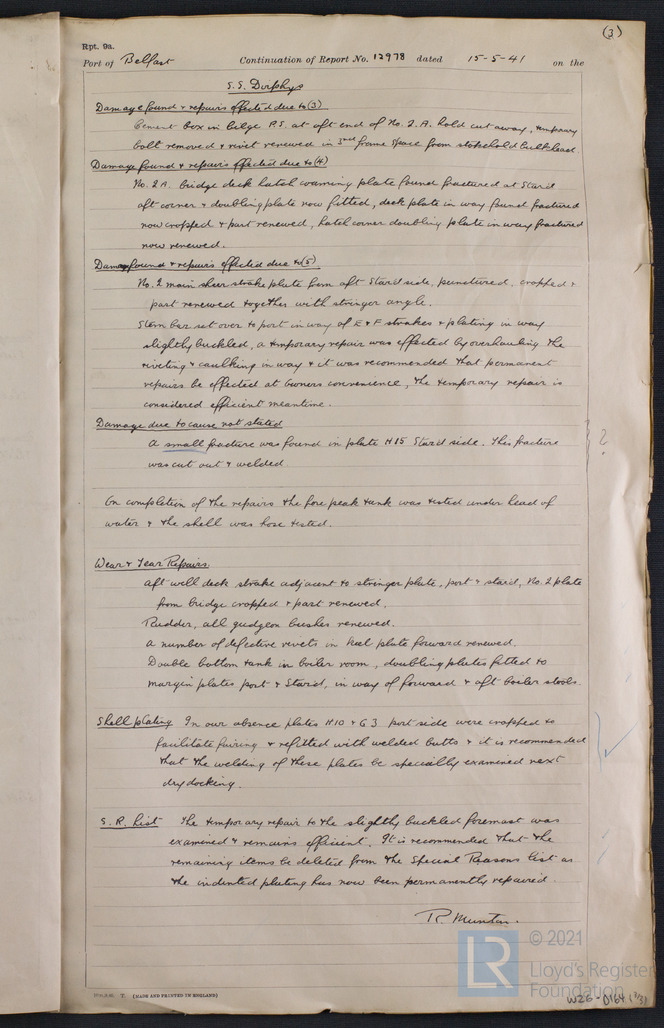 (3)
Rpt. 9a.
Port of Belfast Continuation of Report No. 12978 dated 15-5-41 on the
S.S. Dorphys
Damage found & repairs effected due to (3)
Cement box in bilge P.S. at aft end of No. 2.A. hold cut away, temporary
bolt removed & rivet renewed in 3rd frame space from stokehold bulkhead
Damage found & repairs effected due to (4)
No. 2A. bridge deck hatch coaming plate found fractured at Starb'd
aft corner & doubling plate now fitted, deck plate in way found fractured
now cropped & part renewed, hatch corner doubling plate in way fractured
now renewed.
Damage found & repairs effected due to (5)
No. 2 main sheer strake plate from aft Starb'd side, punctured, cropped &
part renewed together with stringer angle.
Stem bar set over to port in way of E & F strakes & plating in way
slightly buckled, a temporary repair was effected by overhauling the
riveting & caulking in way & it was recommended that permanent
repairs be effected at Owners convenience, the temporary repair is
considered efficient meantime.
Damage due to cause not stated
A small fracture was found in plate H15 Starb'd side. This fracture
was cut out & welded
?
On completion of the repairs the fore peak tank was tested under head of
water & the shell was hose tested.
Wear & Tear Repairs
Aft well deck strake adjacent to stringer plate, port & starb'd, No. 2 plate
from bridge cropped & part renewed.
Rudder, all gudgeon bushes renewed.
A number of defective rivets in keel plate forward renewed.
Double bottom tank in boiler room, doubling plates fitted to
margin plates port & Starb'd, in way of forward & aft boiler stools.
Shell plating In our absence plates H10 & G3 port side were cropped to
facilitate fairing & refitted with welded butts & it is recommended
that the welding of these plates be specially examined next
drydocking.
S. R. List The temporary repair to the slightly buckled foremast was
examined & remains efficient. It is recommended that the
remaining items be deleted from the Special Reasons list as
the indented plating has now been permanently repaired.
R. Munton.
T. (MADE AND PRINTED IN ENGLAND)
LR
© 2021
Lloyd's Register
Foundation
W26-0164 (3/3)